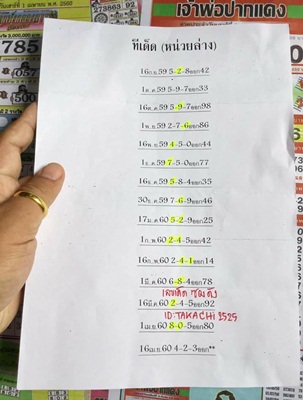 273863 92
1 เมษายน พ.ศ. 2560
785
057
500
เจ้าพ่อปากแดง
ทีเด็ด (หน่วยล่าง)
16ก.ย.59 5-2-8ออก42
1ต.ค.59 5-9-7ออก33
16ต.ค.59 5-9-7ออก98
1พ.ย.59 2-7-6ออก86
16พ.ย.59 4-5-0ออก44
1ธ.ค.59 7-5-0ออก77
16ธ.ค.59 5-8-4ออก35
30ธ.ค.59 7-6-9ออก46
17ม.ค.60 5-2-9ออก25
1ก.พ.60 2-4-5ออก42
16ก.พ.60 2-4-1ออก14
1มี.ค.60 6-8-4ออก78
เลขเด็ด ซุปตัง
16มี.ค.60 2-4-5ออก92
ID:TAKACHI2525
1เม.ย.60 8-0-5ออก80
16เม.ย.60 4-2-3ออก**